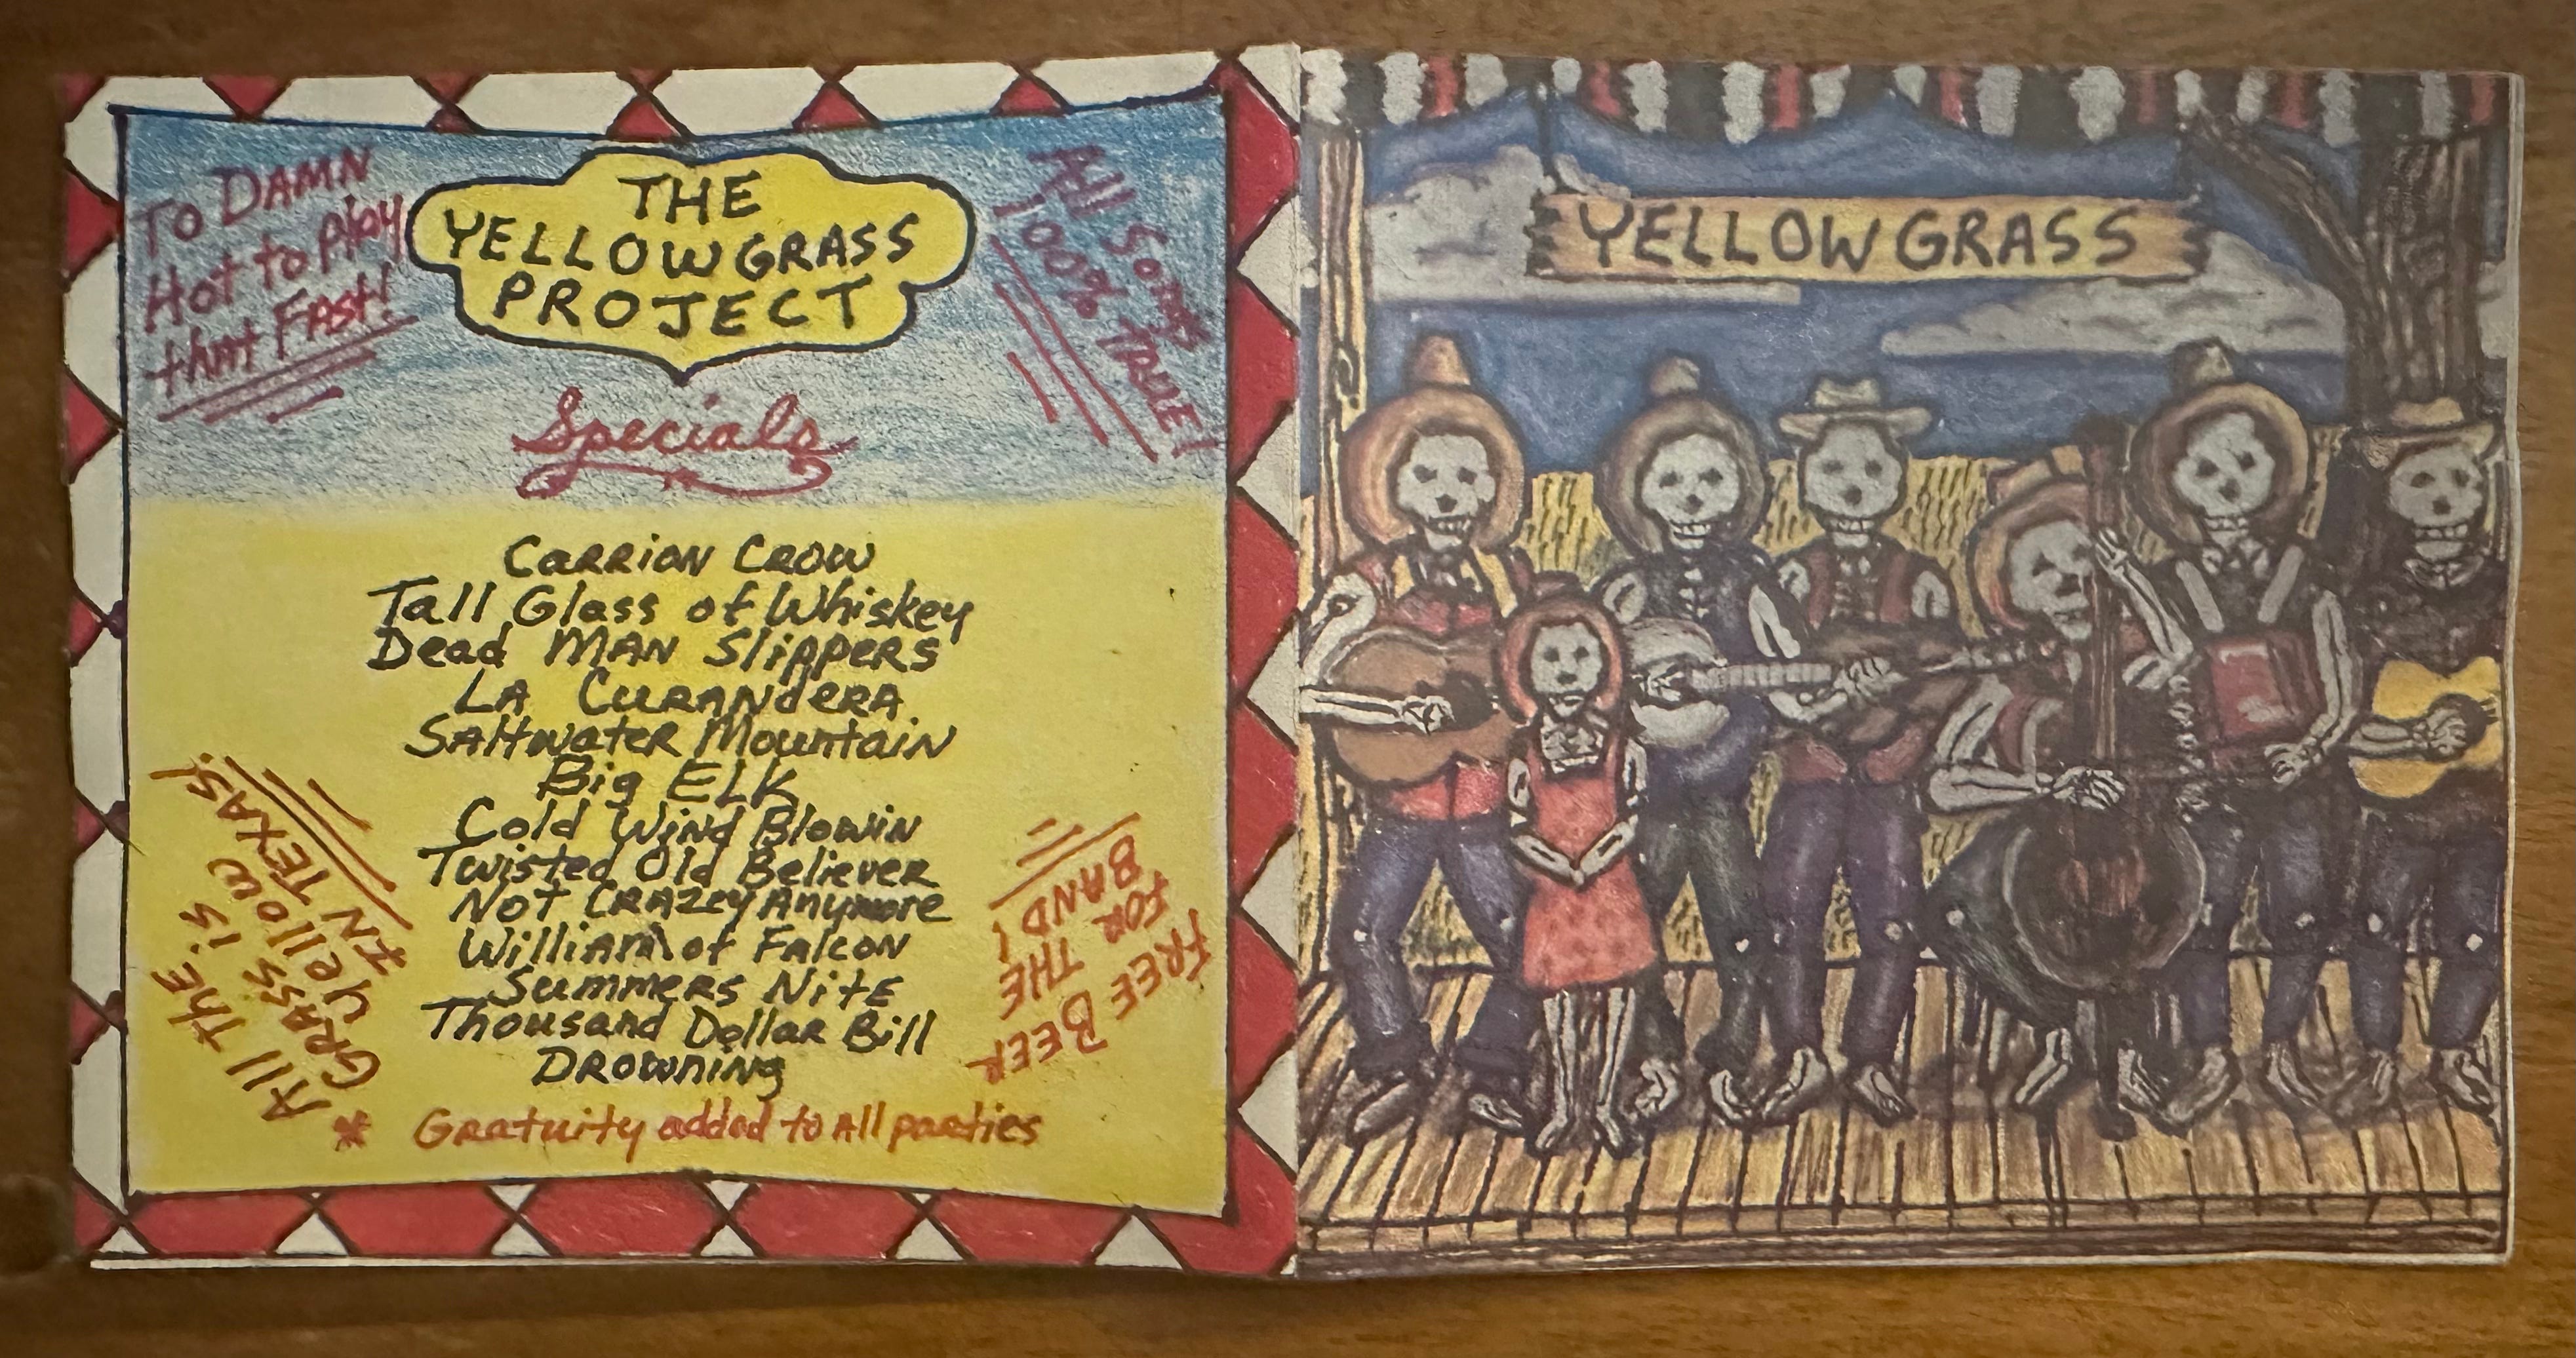 To DAMN
Hot to Play
that FAST!
THE
YELLOWGRASS
PROJECT
All Songs
100% TRUE!
Specials
CARRION CROW
Tall Glass of Whiskey
Dead MAN SlippERS
LA CURANdERA
SAltwater Mountain
Big ELK
Cold Wind Blowin
Twisted Old Believer
Not CRAZey Anymore
William of Falcon
Summers Nite
Thousand Dollar Bill
DROWNING
All THE
GRASS is
Yellow
IN TEXAS!
FREE BEER
FOR
THE
BAND!
* Gratuity added to All parties
YELLOW GRASS